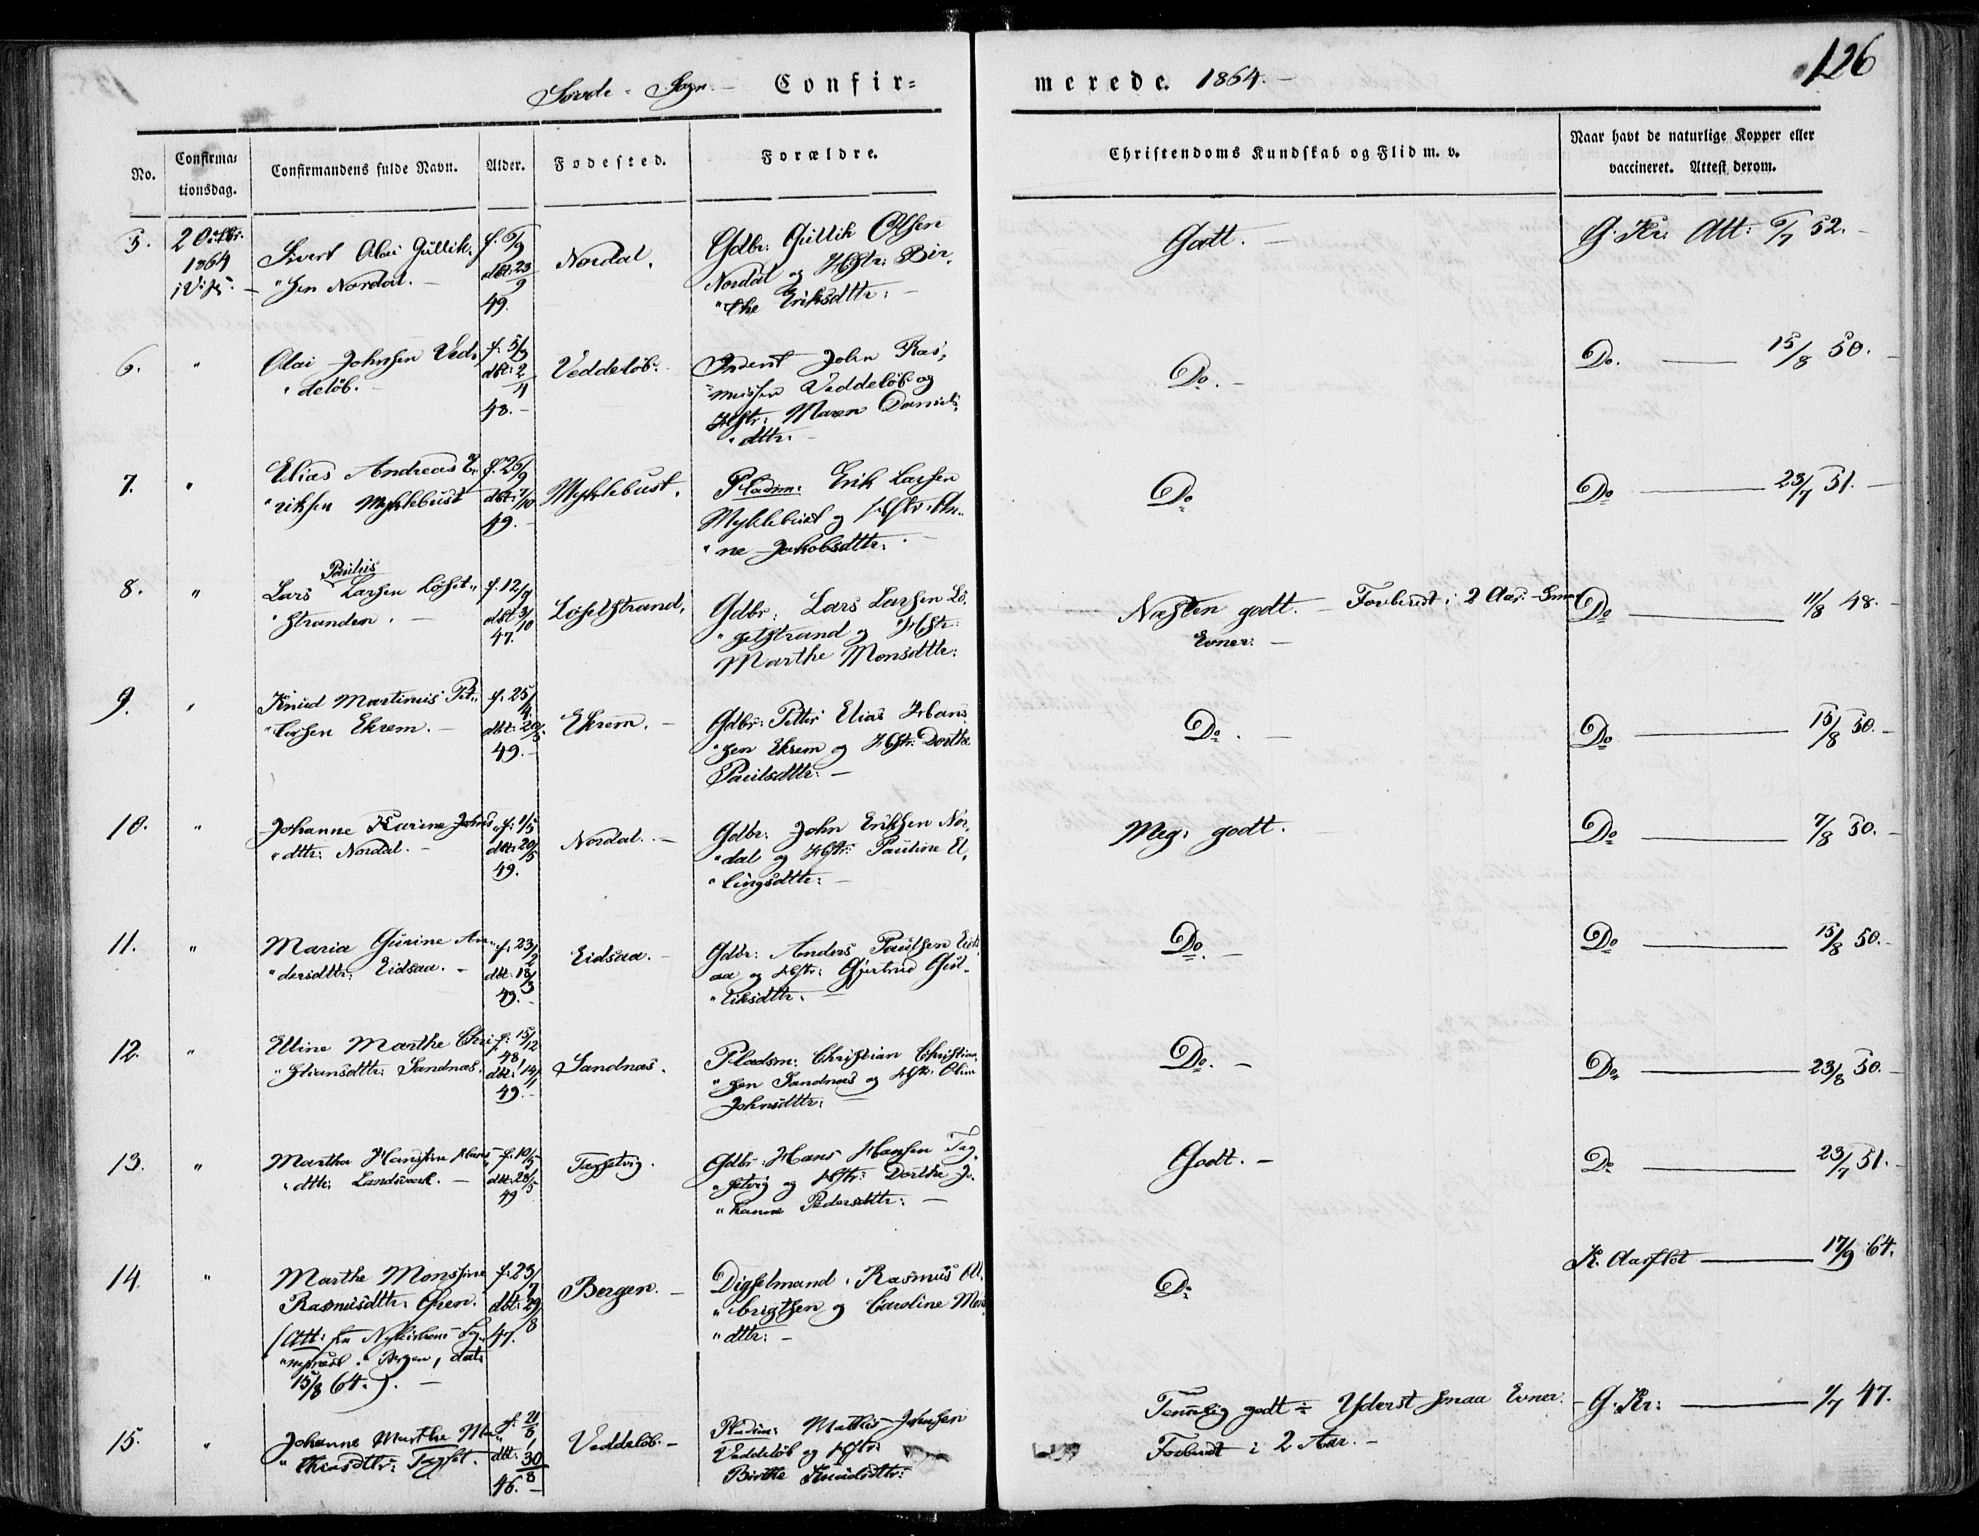 126
Sövde Sogn. – Confir= merede. 1864. –
No. Confirma= tionsdag. Confirmandens fulde Navn. Alder. Fødested. Forældre. Christendoms Kundskab og Flid m. v. Naar havt de naturlige Kopper eller vaccineret. Attest derom.
5. 2 Octbr. 1864
Sivert Olai Gullik,
"sen Nordal. –
dbt: 23/9
49.
Nordal.
Gdbr: Gullik Olsen
Nordal og Hstr: Bir,
"the Eriksdttr: –
Godt. –
G. Kr: Att: 52. –
6. "
Olai Johnsen Ved,
"deløb. –
f. 5/3
dbt: 2/4
48. –
Veddeløb.
John Ras,
"mussen Veddeløb og
Hstr: Maren Daniels,
"dttr: –
Do. –
Do. 15/8 50. –
7. "
Elias Andreas E,
"riksen Myklebust
f. 26/9
dbt: 7/10
49. –
Myklebust.
Pladsm: Erik Larsen
Myklebust og Hstr: An,
"ne Jakobsdttr: –
Do
Do 23/7 51. –
8. "
Paulus
Lars Larsen Løset,,
"stranden. –
f. 12/9
dbt: 3/10
47. –
Løsetstrand.
Gdbr: Lars Larsen Lö,
"setstrand og Hstr:
Marthe Monsdttr:
Næsten godt. – Forberedt i 2 Aar. – Smaa
Evner. –
Do 11/8 48. –
9. "
Knud Martinus Pet,,
"tersen Ekrem. –
f. 25/4
dbt: 20/5
49. –
Ekrem. –
Gdbr: Petter Elias Hans,
"sen Ekrem og Hstr: Dorthe
Paulsdttr: –
Do. –
Do 15/8 50. –
10. "
Johanne Karine Johns,
"dttr: Nordal. –
f. 1/5
dbt: 20/5
49.
Nordal. –
Gdbr: John Eriksen Nor,
"dal og Hstr: Pauline El,
"lingsdttr: –
Meg: godt.
Do 7/8 50. –
11. "
Maria Gurine An,,
"dersdttr: Eidsaa. –
f. 23/2
dbt: 18/3
49. –
Eidsaa. –
Gdbr: Anders Paulsen Eids,
aa og Hstr: Gjertrud Gul,
"liksdttr. –
Do. –
Do 15/8 50. –
12. "
Elline Marthe Chri,
"stiansdttr: Sandnæs.
f. 15/12
48.
dbt: 14/1
49. –
Sandnæs.
Pladsm: Christian Christian,
"sen Sandnæs og Hstr: Oline
Johnsdttr: –
Do. –
Do 23/8 50. –
13. "
Martha Hansine Hans,
"dttr: Landsværk. –
f. 10/5
dbt: 28/5
49
Tagsetvig.
Gdbr: Hans Hansen Tag,
"setvig og Hstr: Dorthe Jo,
"hanne Pedersdttr: –
Godt. –
Do 23/7 51. –
14. "
Marthe Monsine
Rasmusdttr: Øren.
(Att: fra Nykirkens Sog,,
"nepræst i Bergen, dat:
15/8 64.). –
f. 23/7
dbt: 29/8
47.
Bergen. –
Digselmand. Rasmus Al,
"brigtsen og Caroline Mons
"dttr: –
Do
K. Aarflot 17/9 64.
15. "
Johanne Marthe Ma,,
"thiasdttr: Tagset.
dbt: 30/8
46. –
Veddeløb. –
Pladsm: Mathis Johnsen
Veddeløb og Hstr:
Birthe Knudsdttr:
Temmelig godt – Yderst smaa Evner. –
Forberedt i 2 Aar. –
G. Kr: 1/7 47.